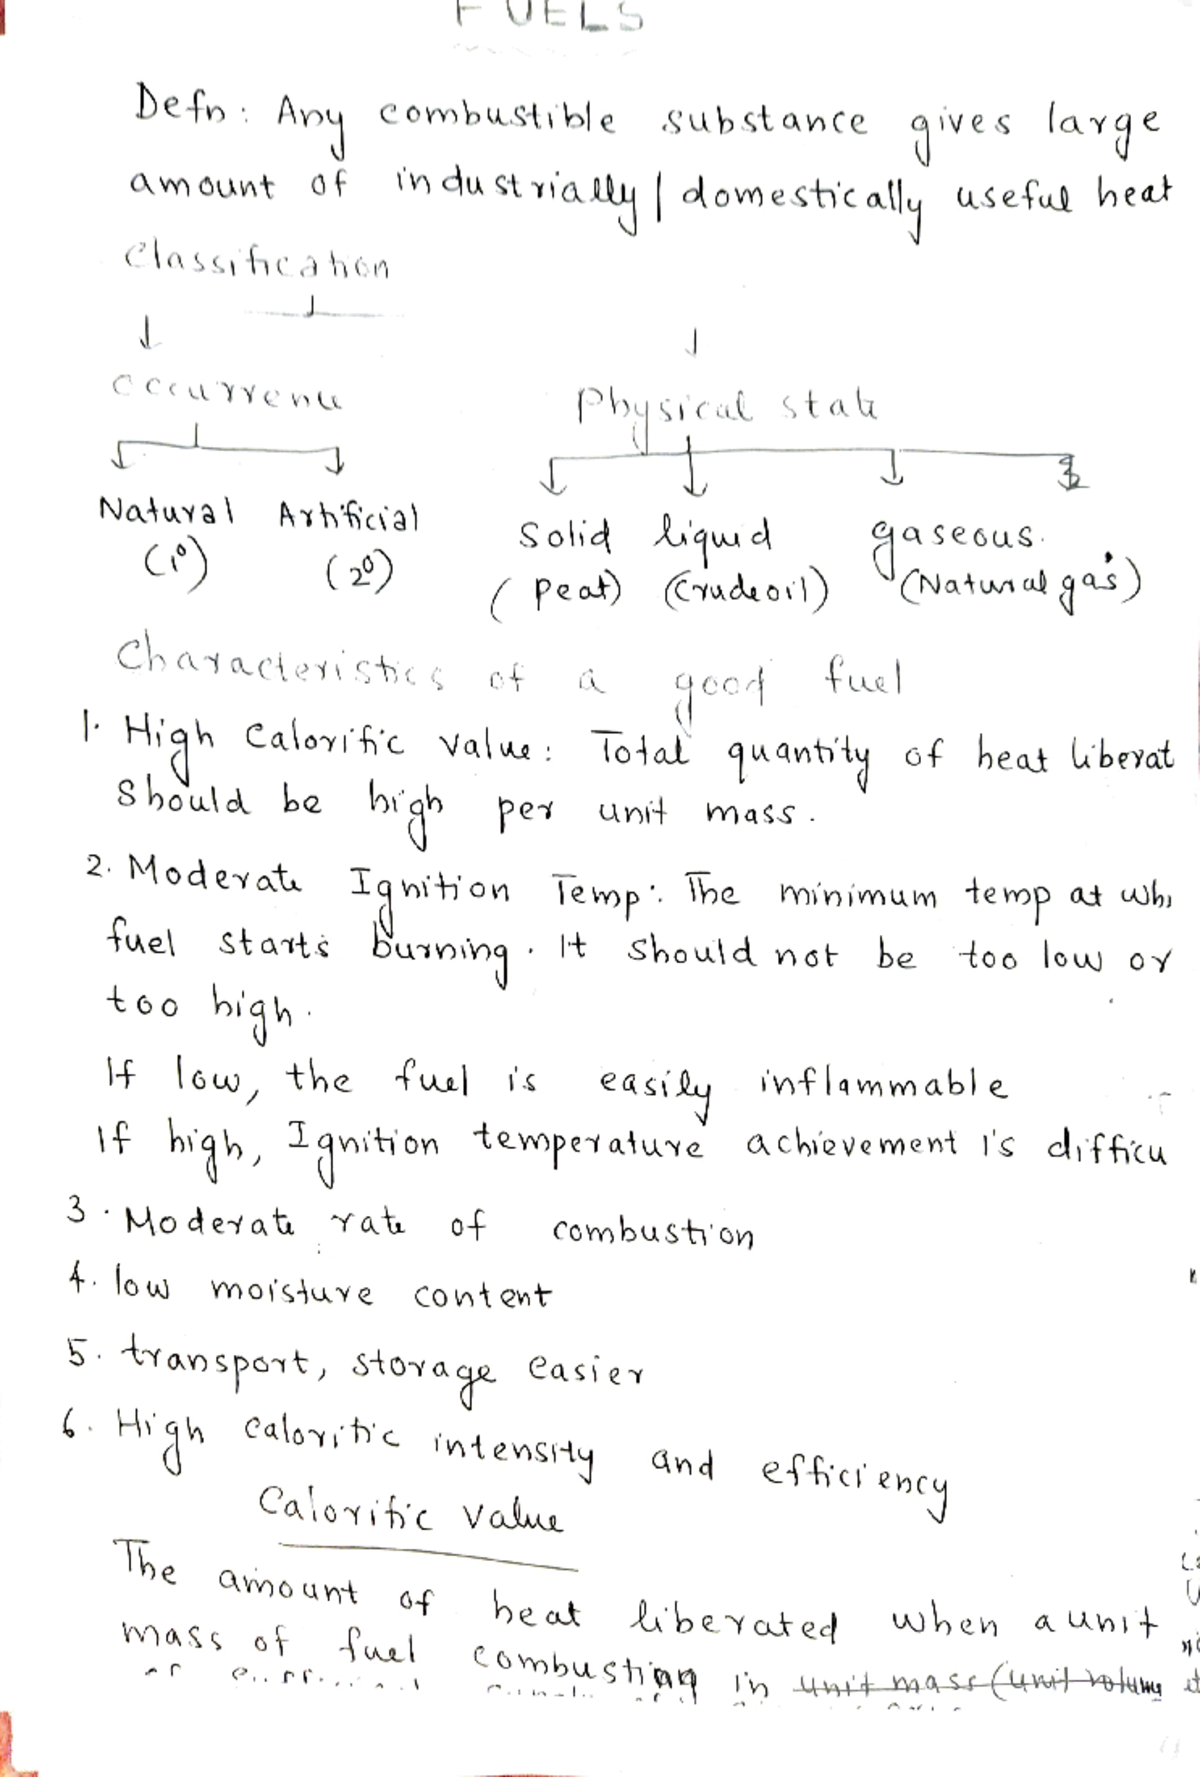 FUELS
Defn: Any combustible substance gives large
amount of industrially / domestically useful heat
Classification
Occurrence Physical state
Natural Artificial Solid liquid gaseous.
(1⁰) (2⁰) (Peat) (Crude oil) (Natural gas)
Characteristics of a good fuel
1. High Calorific value: Total quantity of heat liberat
Should be high per unit mass.
2. Moderate Ignition Temp: The minimum temp at whi
fuel starts burning. It should not be too low or
too high.
If low, the fuel is easily inflammable
If high, Ignition temperature achievement is difficu
3. Moderate rate of combustion
4. low moisture content
5. transport, storage easier
6. High caloritic intensity and efficiency
Calorific value
The amount of heat liberated when a unit
mass of fuel combusting in unit mass (unit volume